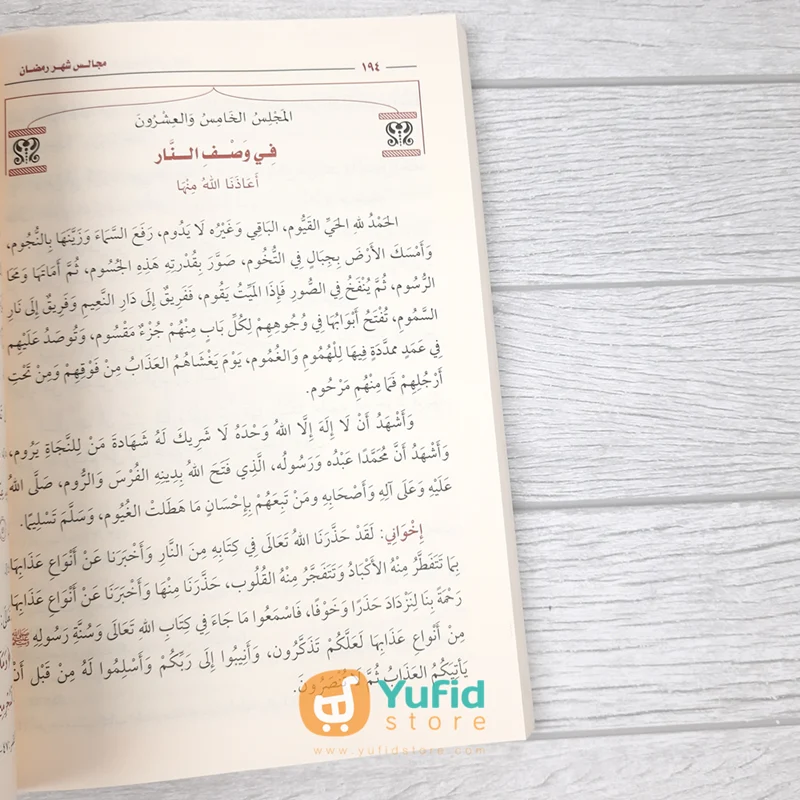 ١٩٤ مجالس شهر رمضان
المَجْلِسُ الخَامِسُ وَالعِشْرُونَ
فِي وَصْفِ النَّارِ
أَعَاذَنَا اللهُ مِنْهَا
الحَمْدُ للهِ الحَيِّ القَيُّوم، البَاقِي وَغَيْرُه لَا يَدُوم، رَفَعَ السَّمَاءَ وَزَيَّنَهَا بِالنُّجُوم،
وَأَمْسَكَ الأَرْضَ بِجِبَالٍ فِي التُّخُوم، صَوَّرَ بِقُدْرَتِهِ هَذِهِ الجُسُوم، ثُمَّ أَمَاتَهَا وَمَحَا
الرُّسُوم، ثُمَّ يُنْفَخُ فِي الصُّورِ فَإِذَا المَيِّتُ يَقُوم، فَفَرِيقٌ إِلَى دَارِ النَّعِيمِ وَفَرِيقٌ إِلَى نَارِ
السَّمُومِ، تُفْتَحُ أَبْوَابُهَا فِي وُجُوهِهِمْ لِكُلِّ بَابٍ مِنْهُمْ جُزْءٌ مَقْسُوم، وَتُوصَدُ عَلَيْهِم
فِي عَمَدٍ ممدَّدَةٍ فِيهَا لِلْهُمُومِ وَالغُمُوم، يَوْمَ يَغْشَاهُمُ العَذَابُ مِنْ فَوْقِهِمْ وَمِنْ تَحْتِ
أَرْجُلِهِمْ فَمَا مِنْهُم مَرْحُوم.
وَأَشْهَدُ أَنْ لَا إِلَهَ إِلَّا اللهُ وَحْدَهُ لَا شَرِيكَ لَهُ شَهَادةَ مَنْ لِلنَّجَاةِ يَرُوم،
وَأَشْهَدُ أَنَّ مُحَمَّدًا عَبْدُه وَرَسُولُه، الَّذِي فَتَحَ اللهُ بِدِينِهِ الفُرْسَ وَالرُّوم، صَلَّى اللهُ
عَلَيْهِ وَعَلَى آلِهِ وَأَصْحَابِهِ وَمَنْ تَبِعَهُمْ بِإِحْسَانٍ مَا هَطَلَت الغُيُوم، وَسَلَّمَ تَسْلِيمًا.
إِخْوَانِي: لَقَدْ حَذَّرَنَا اللهُ تَعَالَى فِي كِتَابِهِ مِنَ النَّارِ وَأَخْبَرَنا عَنْ أَنْوَاعِ عَذَابِهَا
بِمَا تَتَفَطَّرُ مِنْهُ الأَكْبَادُ وَتَتَفَجَّرُ مِنْهُ القُلُوب، حَذَّرَنَا مِنْهَا وَأَخْبَرَنَا عَنْ أَنْوَاعِ عَذَابِهَا
رَحْمَةً بِنَا لِنَزْدَادَ حَذَرًا وَخَوْفًا، فَاسْمَعُوا مَا جَاءَ فِي كِتَابِ اللهِ تَعَالَى وَسُنَّةِ رَسُولِهِ ﷺ
مِنْ أَنْوَاعِ عَذَابِهَا لَعَلَّكُمْ تَذَكَّرُون، وَأَنِيبُوا إِلَى رَبِّكُمْ وَأَسْلِمُوا لَهُ مِنْ قَبْلِ أَنْ
يَأْتِيَكُمُ العَذَابُ ثُمَّ لَا تُنْصَرُونَ.
Yufid
store
www.yufidstore.com